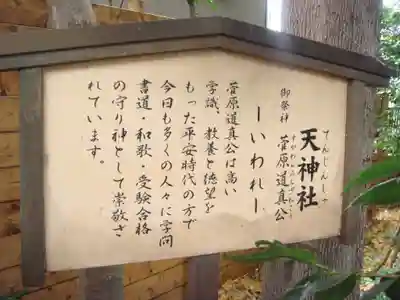 てんじんしゃ
天神社
御祭神 菅原道真公
すがわらみちざねこう
ーいわれー
菅原道真公は高い
学識、教養と徳望を
もった平安時代の方で
今日も多くの人々に学問
書道・和歌・受験合格
の守り神として崇敬さ
れています。